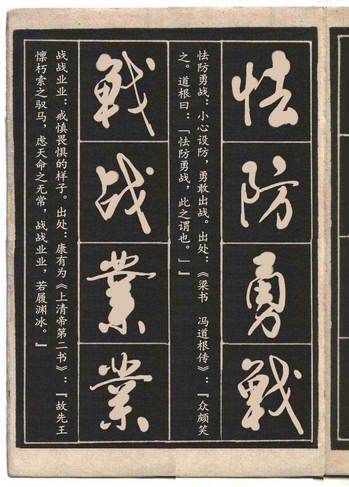 怯防勇戰
怯防勇战：小心设防，勇敢出战。出处：《梁书　冯道根传》：『众颇笑
之。道根曰：「怯防勇战，此之谓也。」』
戰战業業
战战业业：戒慎畏惧的样子。出处：康有为《上清帝第二书》：『故先王
懔朽索之驭马，虑天命之无常，战战业业，若履渊冰。』